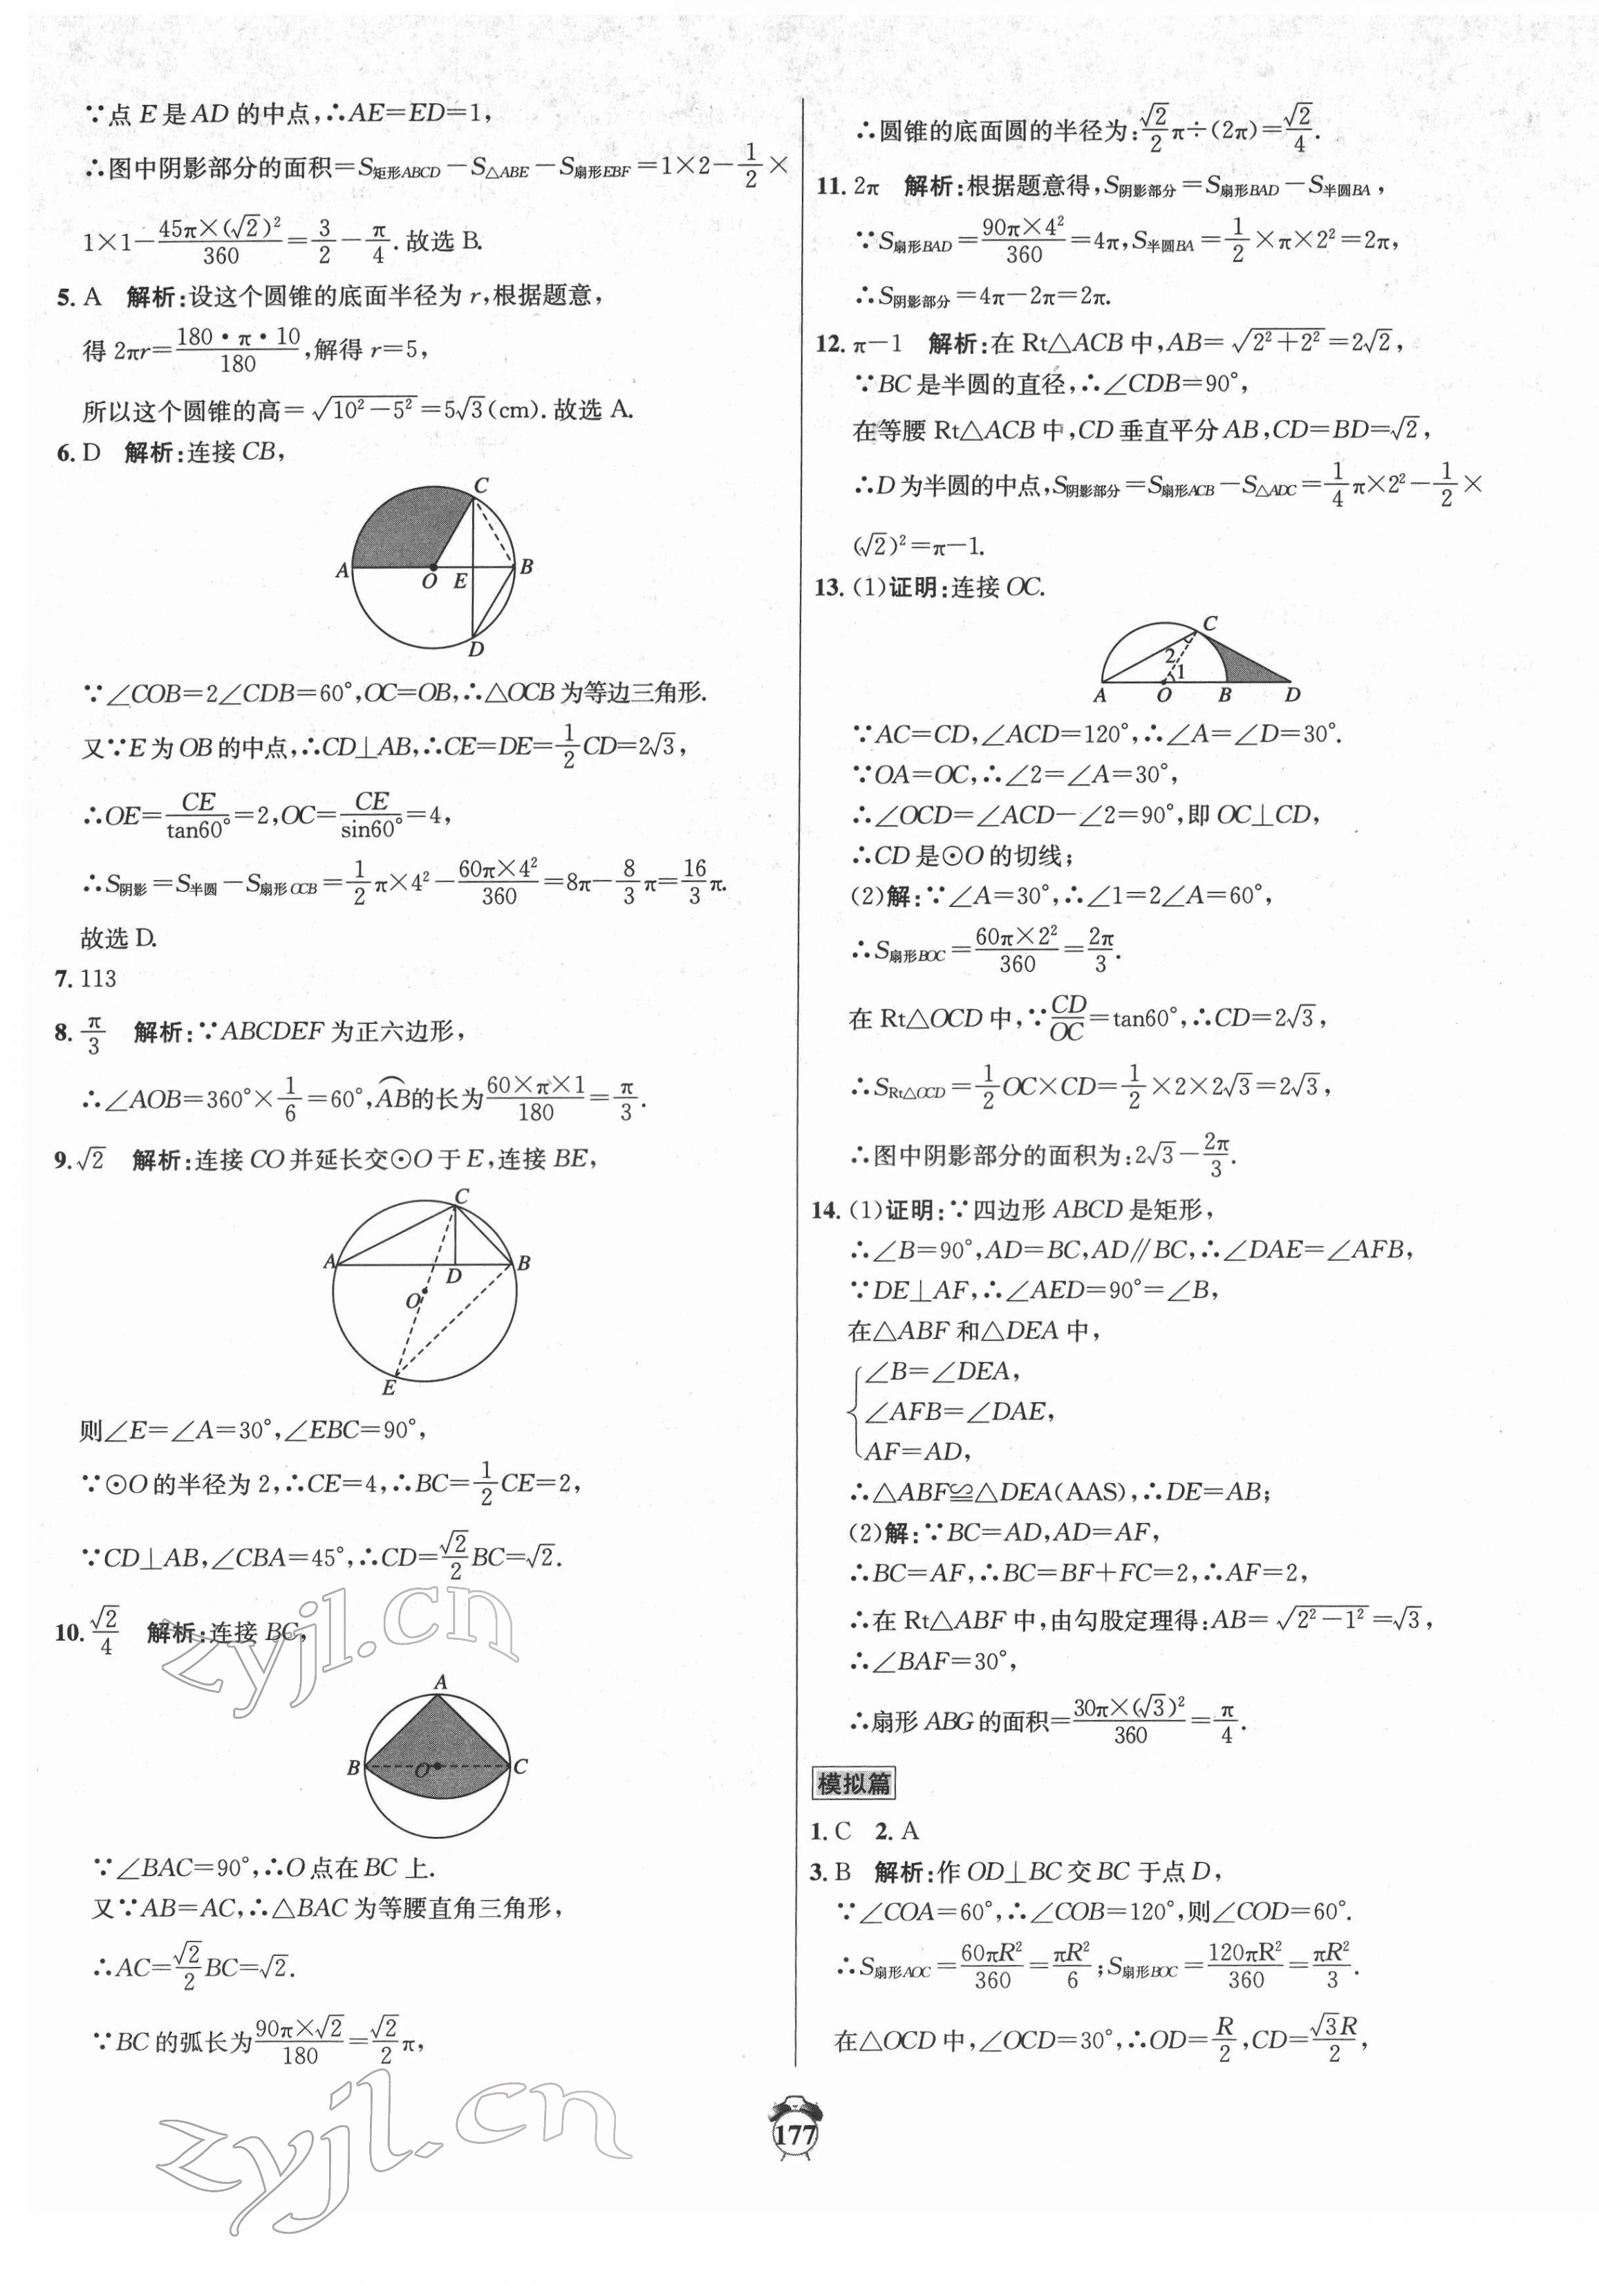 ∵点 E 是 AD 的中点,∴AE=ED=1,
∴图中阴影部分的面积=S矩形ABCD－S△ABE－S扇形EBF=1×2－1/2×
1×1－45π×(√2)²/360=3/2－π/4.故选 B.
5. A 解析:设这个圆锥的底面半径为 r,根据题意,
得 2πr=180·π·10/180,解得 r=5,
所以这个圆锥的高=√(10²－5²)=5√3(cm).故选 A.
6. D 解析:连接 CB,
C
A
O
E
B
D
∵∠COB=2∠CDB=60°,OC=OB,∴△OCB 为等边三角形.
又∵E 为 OB 的中点,∴CD⊥AB,∴CE=DE=1/2CD=2√3,
∴OE=CE/tan60°=2,OC=CE/sin60°=4,
∴S阴影=S半圆－S扇形OCB=1/2π×4²－60π×4²/360=8π－8/3π=16/3π.
故选 D.
7. 113
8. π/3 解析:∵ABCDEF 为正六边形,
∴∠AOB=360°×1/6=60°,⌒AB的长为60×π×1/180=π/3.
9. √2 解析:连接 CO 并延长交⊙O 于 E,连接 BE,
C
A
D
B
O
E
则∠E=∠A=30°,∠EBC=90°,
∵⊙O 的半径为 2,∴CE=4,∴BC=1/2CE=2,
∵CD⊥AB,∠CBA=45°,∴CD=√2/2BC=√2.
10. √2/4 解析:连接 BC,
A
B
O
C
∵∠BAC=90°,∴O 点在 BC 上.
又∵AB=AC,∴△BAC 为等腰直角三角形,
∴AC=√2/2BC=√2.
∵BC 的弧长为90π×√2/180=√2/2π,
∴圆锥的底面圆的半径为:√2/2π÷(2π)=√2/4.
11. 2π 解析:根据题意得,S阴影部分=S扇形BAD－S半圆BA,
∵S扇形BAD=90π×4²/360=4π,S半圆BA=1/2×π×2²=2π,
∴S阴影部分=4π－2π=2π.
12. π－1 解析:在 Rt△ACB 中,AB=√(2²＋2²)=2√2,
∵BC 是半圆的直径,∴∠CDB=90°,
在等腰 Rt△ACB 中,CD 垂直平分 AB,CD=BD=√2,
∴D 为半圆的中点,S阴影部分=S扇形ACB－S△ADC=1/4π×2²－1/2×
(√2)²=π－1.
13. (1)证明:连接 OC.
C
2
1
A
O
B
D
∵AC=CD,∠ACD=120°,∴∠A=∠D=30°.
∵OA=OC,∴∠2=∠A=30°,
∴∠OCD=∠ACD－∠2=90°,即 OC⊥CD,
∴CD 是⊙O 的切线;
(2)解:∵∠A=30°,∴∠1=2∠A=60°,
∴S扇形BOC=60π×2²/360=2π/3.
在 Rt△OCD 中,∵CD/OC=tan60°,∴CD=2√3,
∴SRt△OCD=1/2OC×CD=1/2×2×2√3=2√3,
∴图中阴影部分的面积为:2√3－2π/3.
14. (1)证明:∵四边形 ABCD 是矩形,
∴∠B=90°,AD=BC,AD∥BC,∴∠DAE=∠AFB,
∵DE⊥AF,∴∠AED=90°=∠B,
在△ABF 和△DEA 中,
∠B=∠DEA,
∠AFB=∠DAE,
AF=AD,
∴△ABF≌△DEA(AAS),∴DE=AB;
(2)解:∵BC=AD,AD=AF,
∴BC=AF,∴BC=BF＋FC=2,∴AF=2,
∴在 Rt△ABF 中,由勾股定理得:AB=√(2²－1²)=√3,
∴∠BAF=30°,
∴扇形 ABG 的面积=30π×(√3)²/360=π/4.
模拟篇
1. C 2. A
3. B 解析:作 OD⊥BC 交 BC 于点 D,
∵∠COA=60°,∴∠COB=120°,则∠COD=60°.
∴S扇形AOC=60πR²/360=πR²/6;S扇形BOC=120πR²/360=πR²/3.
在△OCD 中,∠OCD=30°,∴OD=R/2,CD=√3R/2,
177
zyjl.cn
zyjl.cn